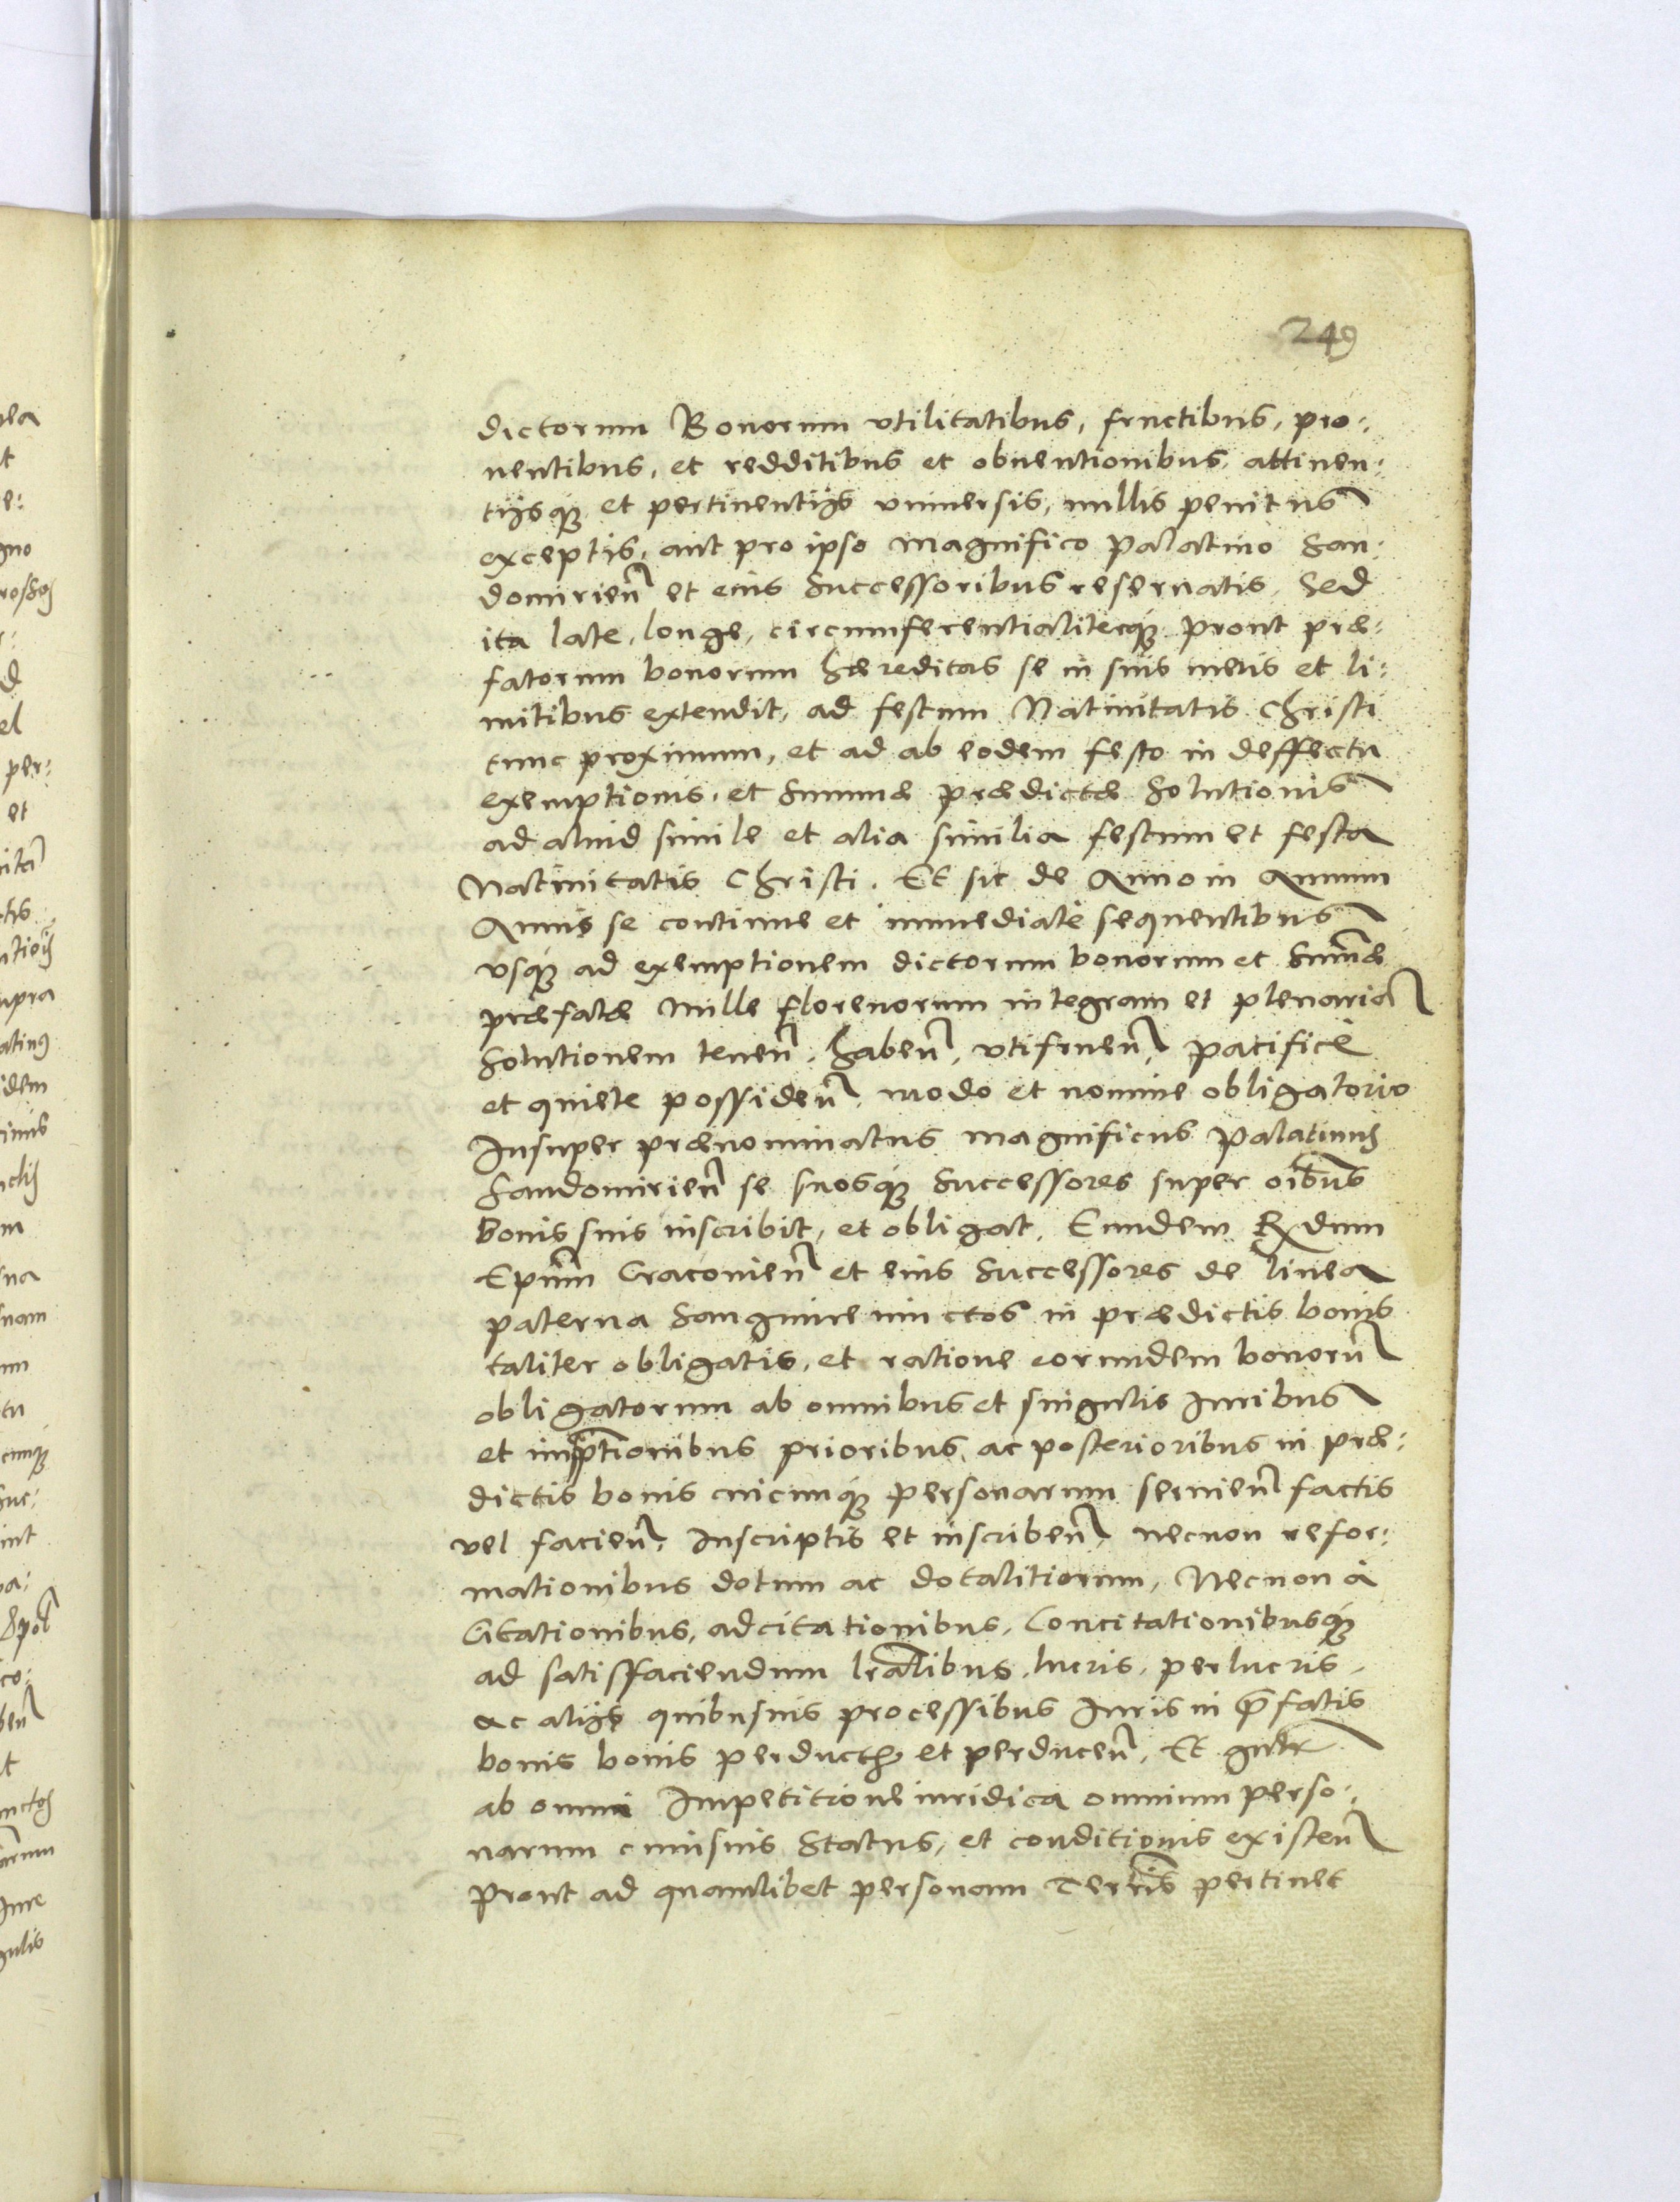 249
dictorum Bonorum vtilitatibus, fructibus, pro:
uentibus, et redditibus et obuentionibus, attinen:
tijsque et pertinentijs vniuersis, nullis penitus
exceptis, aut pro ipso magnifico palatino San:
domirieñ et eius Successoribus reseruatis. Sed
ita late, longe, circumferentialiterque prout præ:
fatorum bonorum hæreditas se in suis metis et li:
mitibus extendit, ad festum Natiuitatis Christi
tunc proximum, et ad ab eodem festo in deffectu
exemptionis, et Summæ prædictæ Solutionis
ad aliud simile et alia similia festum et festa
Natiuitatis Christi. Et sic de Anno in Annum
Annis se continue et immediatè sequentibus
vsque ad exemptionem dictorum bonorum et Sum̃æ
præfatæ Mille florenorum integram et plenariã
Solutionem teneñ, habeñ, vtifrueñ, pacificè
et quiete possideñ, modo et nomine obligatorio
Insuper prænominatus magnificus Palatinus
Sandomirieñ se suosque Successores super oĩbus
bonis suis inscribit, et obligat, Eundem Rdum
Ep̃um Cracouieñ et eius Successores de linea
paterna Sanguine iunctos in prædictis bonis
taliter obligatis, et ratione eorundem bonorũ
obligatorum ab omnibus et singulis Iuribus
et inscrip̃tionibus prioribus, ac posterioribus in præ:
dictis bonis cuicunque personarum seruieñ factis
vel facieñ, Inscriptis et inscribeñ, necnon refor:
mationibus dotum ac dotalitiorum, Necnon à
Citationibus, adcitationibus, Concitationibusque
ad satisfaciendum lrãlibus, lucris, perlucris,
ac alijs quibusuis processibus Iuris in p̃fatis
bonis bonis perductis et perduceñ, Et gñlr
ab omni Impetitione iuridica omnium perso:
narum cuiusuis Status, et conditionis existeñ
Prout ad quamlibet personam Terrĩs pertinet